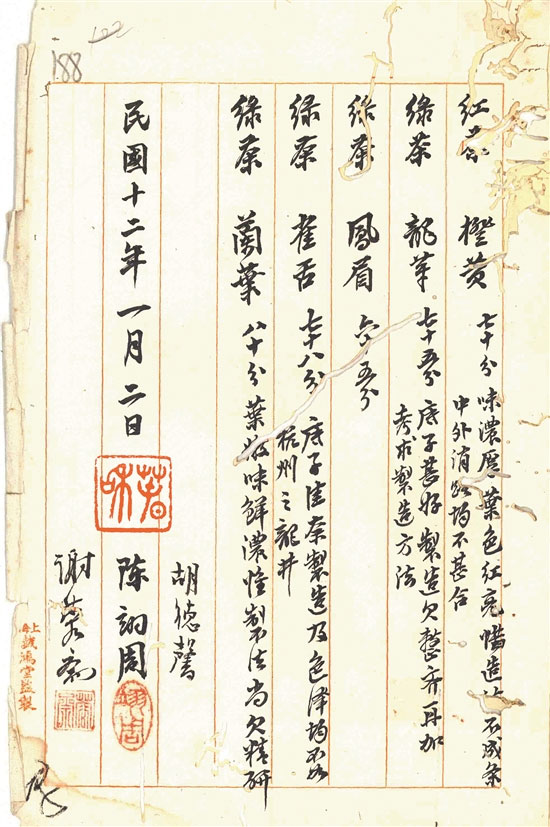 188
红茶 橙黄 七十分 味濃厚 葉色红亮 惜造法不成条
中外消路均不甚合
綠茶 龍芽 七十五分 底子甚好 製造欠整齊 再加
考求製造方法
綠茶 鳳眉 六十五分
綠茶 雀舌 七十八分 底子佳 奈製造及色澤均不如
杭州之龍井
綠茶 蘭葉 八十分 葉嫩味鮮濃 惟製法尚欠精研
民國十二年一月二日
胡德馨
陈翊周
谢蓉斋